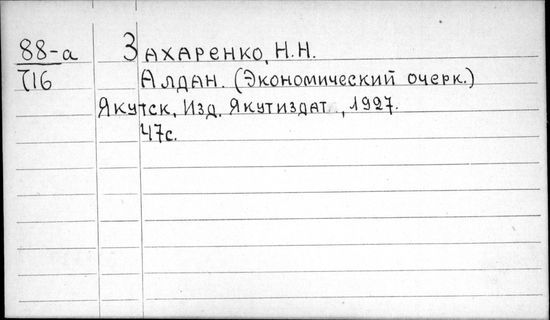 88-а Захаренко, Н.Н.
716 Алдан. (Экономический очерк.)
Якутск, Изд. Якутиздат, 1927.
47с.